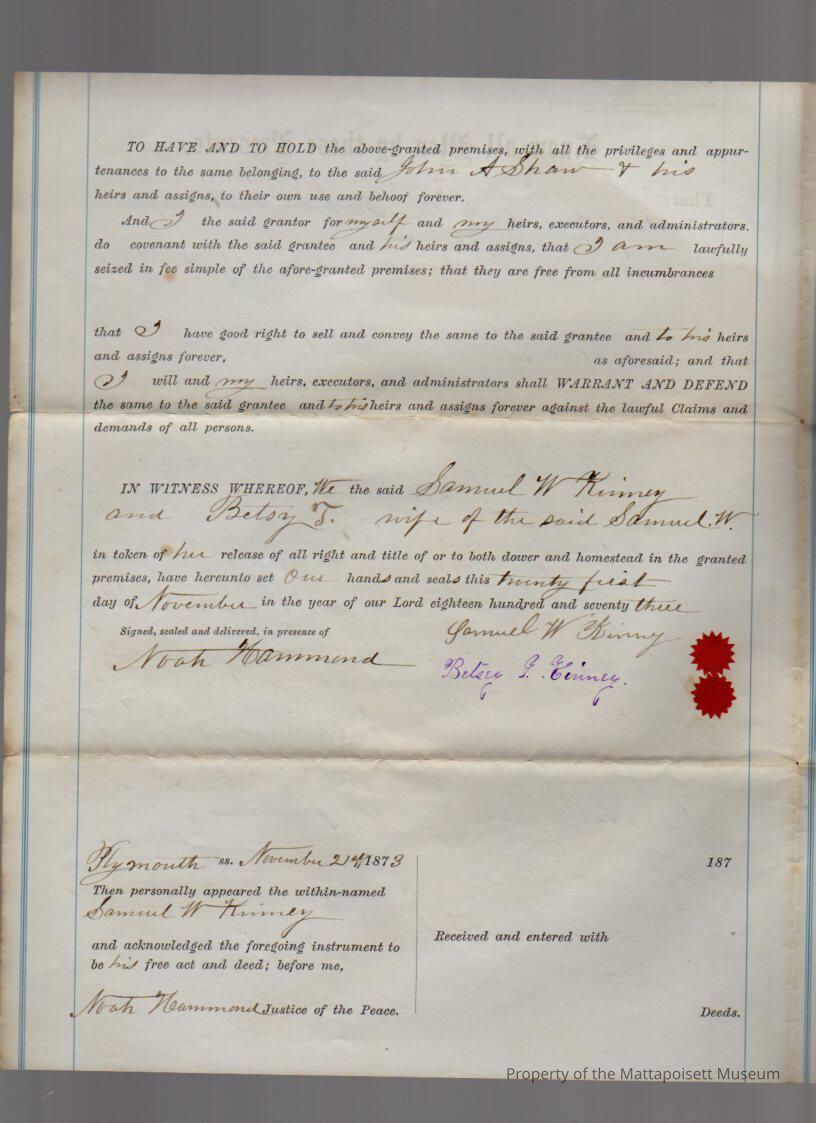 TO HAVE AND TO HOLD the above-granted premises, with all the privileges and appur-
tenances to the same belonging, to the said John A Shaw & his
heirs and assigns, to their own use and behoof forever.
And I the said grantor for myself and my heirs, executors, and administrators,
do covenant with the said grantee and his heirs and assigns, that I am lawfully
seized in fee simple of the afore-granted premises; that they are free from all incumbrances
that I have good right to sell and convey the same to the said grantee and to his heirs
and assigns forever, as aforesaid; and that
I will and my heirs, executors, and administrators shall WARRANT AND DEFEND
the same to the said grantee and to his heirs and assigns forever against the lawful Claims and
demands of all persons.
IN WITNESS WHEREOF, We the said Samuel W Kinney
and Betsy T. wife of the said Samuel. W.
in token of her release of all right and title of or to both dower and homestead in the granted
premises, have hereunto set Our hands and seals this twenty first
day of November in the year of our Lord eighteen hundred and seventy three
Signed, sealed and delivered, in presence of Samuel W Kinney
Noah Hammond Betsey Kinney.
Plymouth ss. November 21st 1873
Then personally appeared the within-named
Samuel W Kinney
and acknowledged the foregoing instrument to
be his free act and deed; before me,
Noah Hammond Justice of the Peace.
187
Received and entered with
Deeds.
Property of the Mattapoisett Museum